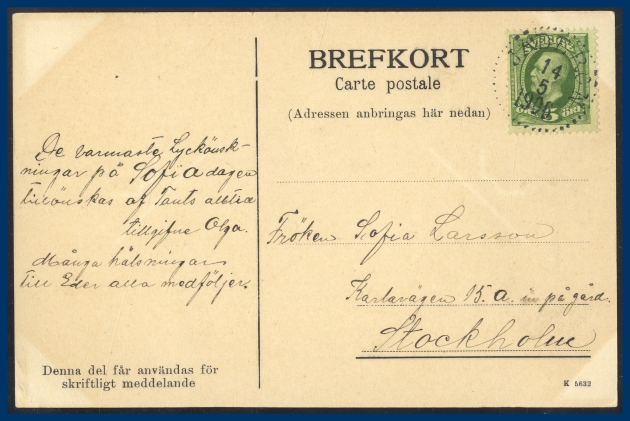 BREFKORT
Carte postale
(Adressen anbringas här nedan)
SVERIGE
14
5
1906
5 ÖRE
De varmaste Lyckönsk-
ningar på Sofiadagen
tillönskas af Tants alltid
tillgifne Olga.
Många hälsningar
till Eder alla medföljer.
Fröken Sofia Larsson
Karlavägen 15.a. in på gård.
Stockholm
Denna del får användas för
skriftligt meddelande
K 5632